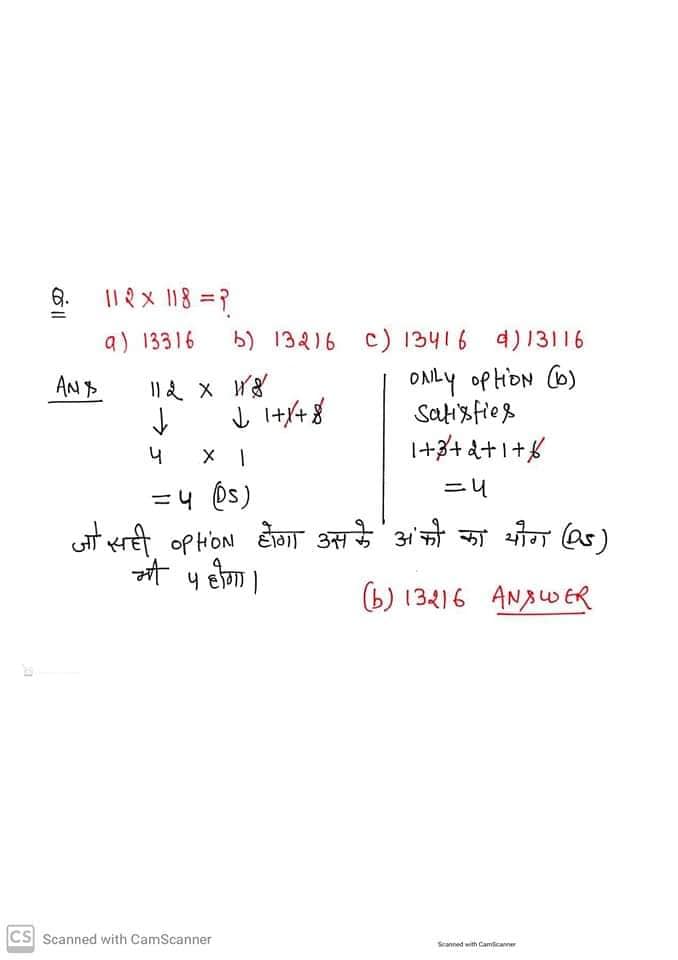 Q. 112 x 118 = ?
a) 13316 b) 13216 c) 13416 d) 13116
ANS 112 x 118
↓ ↓ 1+1+8
4 x 1
= 4 (DS)
ONLY OPTION (b)
Satisfies
1+3+2+1+6
= 4
जो सही OPTION होगा उसके अंको का योग (DS)
भी 4 होगा।
(b) 13216 ANSWER
CS Scanned with CamScanner
Scanned with CamScanner